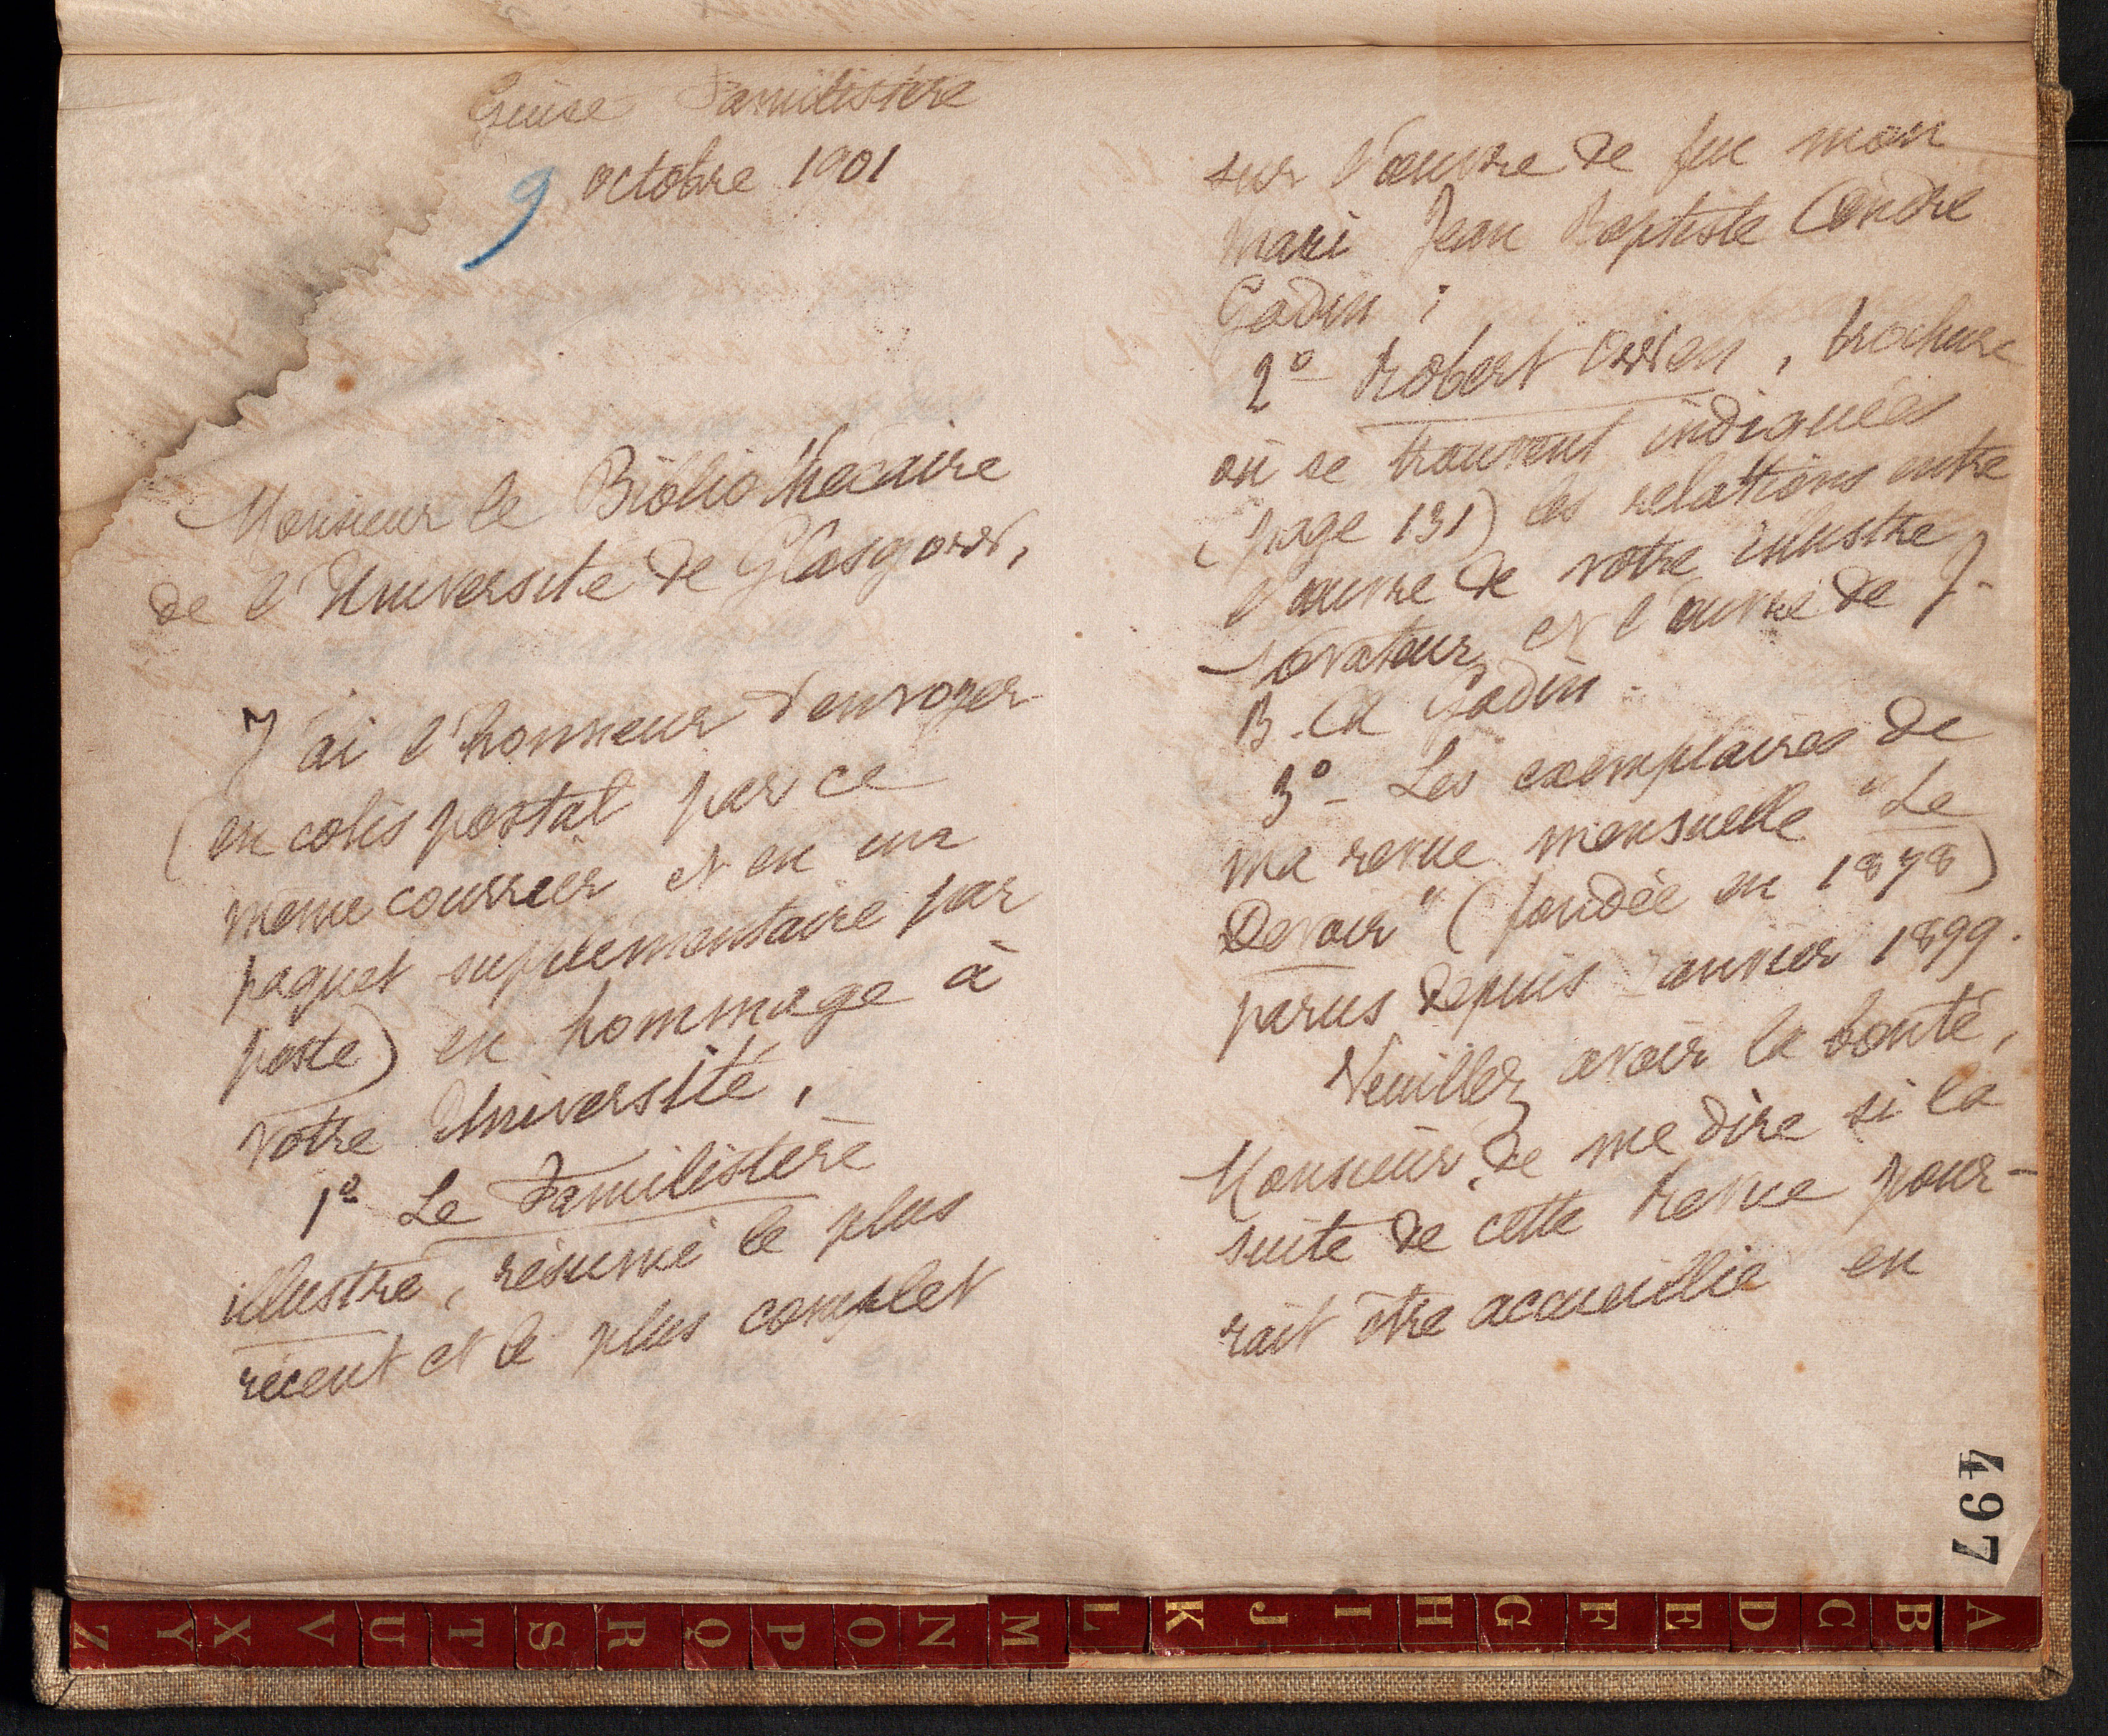 Guise Familistère
9 octobre 1901
Monsieur le Bibliothecaire
de l'Université de Glasgow,
J'ai l'honneur d'envoyer
(en colis postal par ce
même courrier et en un
paquet supplementaire par
poste) en hommage à
votre Université,
1º Le Familistère
illustre, résumé le plus
récent et le plus complet
sur l'œuvre de feu mon
mari Jean Baptiste André
Godin ;
2º Robert Owen, brochure
où se trouvent indiquées
(page 131) les relations entre
l'œuvre de votre illustre
novateur et l'œuvre de J-
B. A Godin.
3º - Les exemplaires de
ma revue mensuelle "Le
Devoir" (fondée en 1878)
parus depuis Janvier 1899.
Veuillez avoir la bonté,
Monsieur, de me dire si la
suite de cette revue pour-
rait être accueillie en
497
Z Y X V U T S R Q P O N M L K J I H G F E D C B A